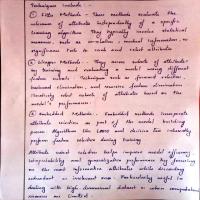 Techniques include :-
① Filter Methods - These methods evaluate the
relevance of attributes independently of a specific
learning algorithm. They typically involve statistical
measures such as correlation, mutual information or
significance tests to rank and select attributes.
② Wrapper Methods - They assess subsets of attributes
by training and evaluating a model using different
feature subsets. Techniques such as forward selection
backward elimination, and recursive feature elimination
iteratively select subsets of attributes based on the
model's performance.
③ Embedded Methods - Embedded methods incorporate
attribute selection as part of the model building
process. Algorithms like LASSO and decision tree inherently
perform feature selection during training.
Attribute subset selection helps improve model efficiency
interpretability and generalization performance by focusing
on the most informative attributes while discarding
redundant or irrelevant ones. Particularly useful in
dealing with high dimensional dataset or when computational
resources are limited.